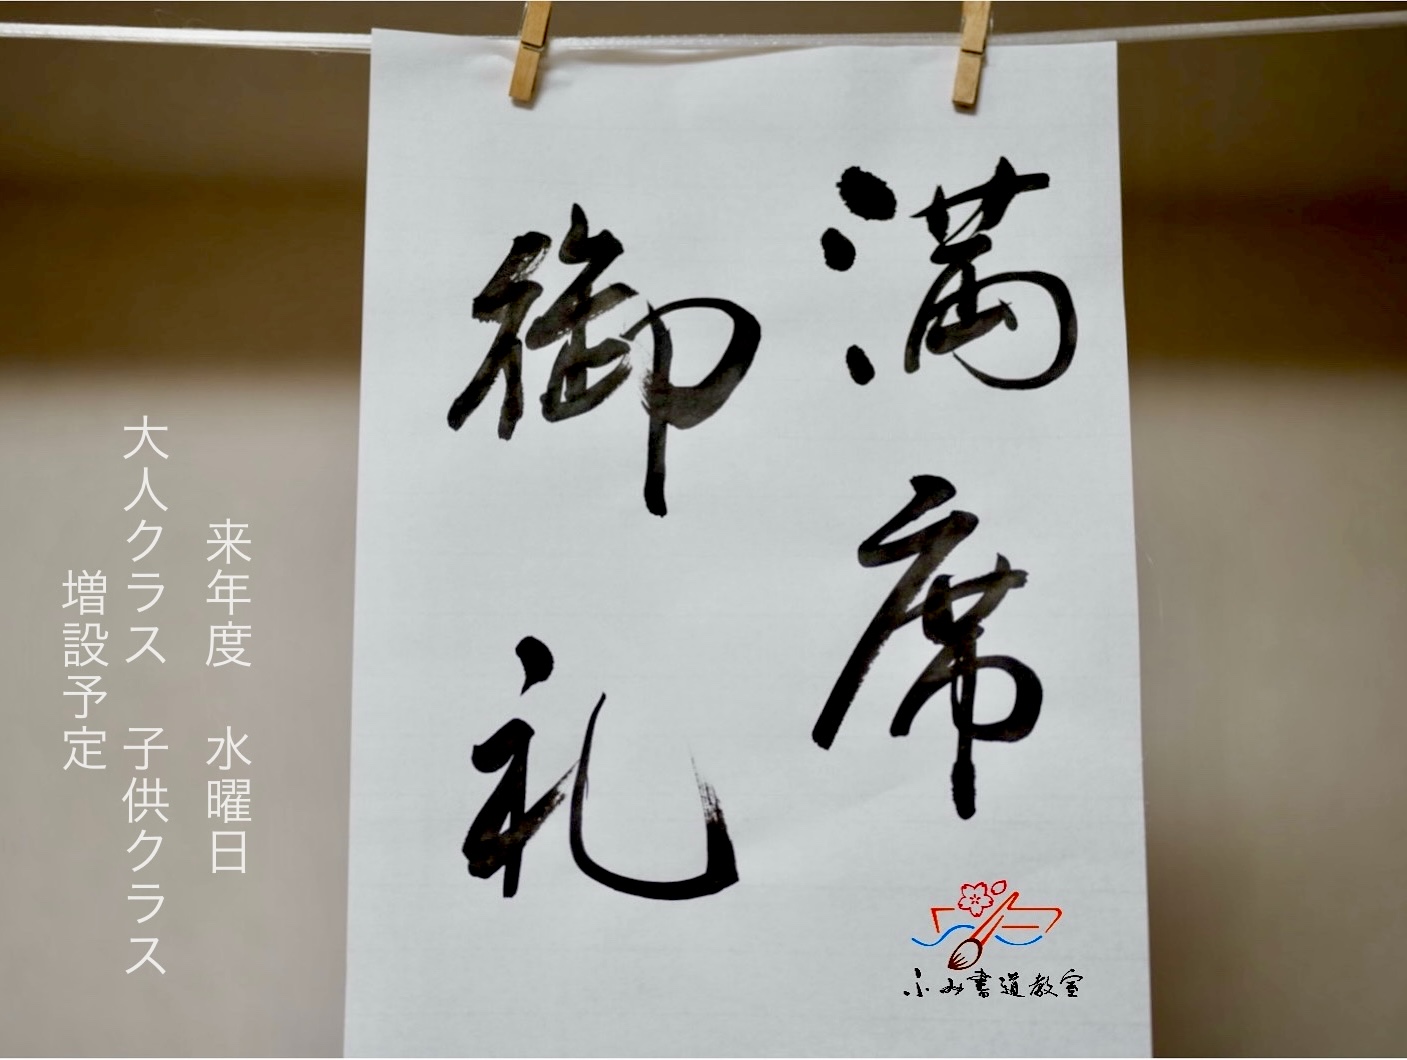 満席
御礼
来年度 水曜日
大人クラス 子供クラス
増設予定
ふみ書道教室